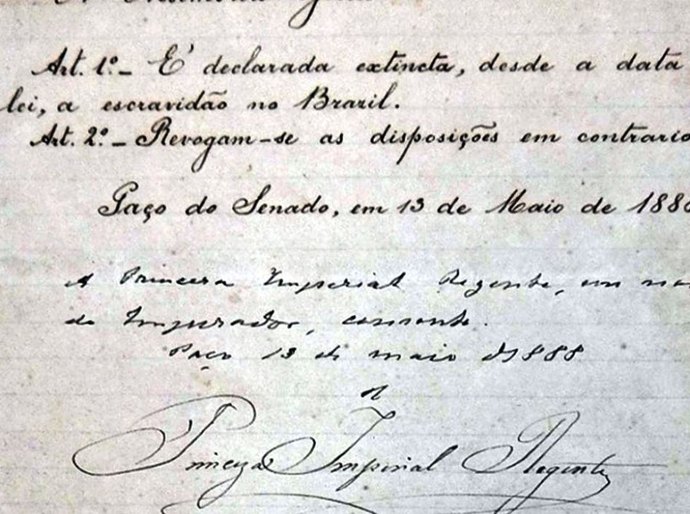 Art. 1º - E' declarada extincta, desde a data
lei, a escravidão no Brazil.
Art. 2º - Revogam-se as disposições em contrario
Paço do Senado, em 13 de Maio de 188
A Princeza Imperial Regente, em
do Imperador, consente.
Paço 13 de maio de 1888
A
Princeza Imperial Regente